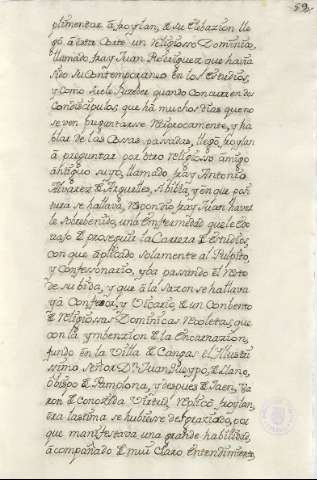 59.
plimentar â froylan, de su Elebazion lle
gó â esta Corte un Religiosso Dominico,
llamado fray Juan Rodriguez que havia
sido su Contemporaneo en los Estudios,
y como suele suceder quando concurren dos
Condiscipulos, que hà muchos dias que no
se ven, preguntarse reciprocamente, y ha
blar de las Cosas passadas, llegò froylan
â preguntar por otro religiosso âmigo
ântiguo suyo, llamado fray Antonio
Alvarez de Arguelles, si bibia, y ên que pos
tura se hallava, respondio fray Juan haver
le sobrebenido, una Enfermedad que le êxtor
vasse de proseguir la Carrera de Estudios,
con que âplicado solamente al Pulpito,
y Confessonario, yba passando el Resto
de su bida, y que â la sazon se hallava
yâ Confesor, y Vicario, de un Conbento
de Religiossas Dominicas Recoletas, que
con la ymbenzion de la Encarnazion,
fundò en la Villa de Cangas el Illustri
ssimo Señor Dn. Juan Queypo, de Llano,
obispo de Pamplona, y despues de Jaen, Va
ron de conozida Virtud, replicò froylan,
era lastima se hubiesse desgraziado, por
que manifestava una grande habilidad,
âcompañado de mui Claro Entendimiento,